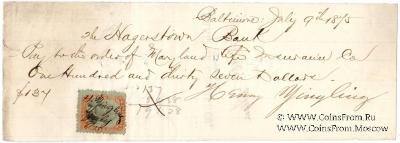 Baltimore, July 9th 1875
The Hagerstown Bank
Pay to the order of Maryland Life Insurance Co
One Hundred and thirty seven Dollars.
$137
Henry Yingling
© www.CoinsFrom.Ru
www.CoinsFrom.Moscow